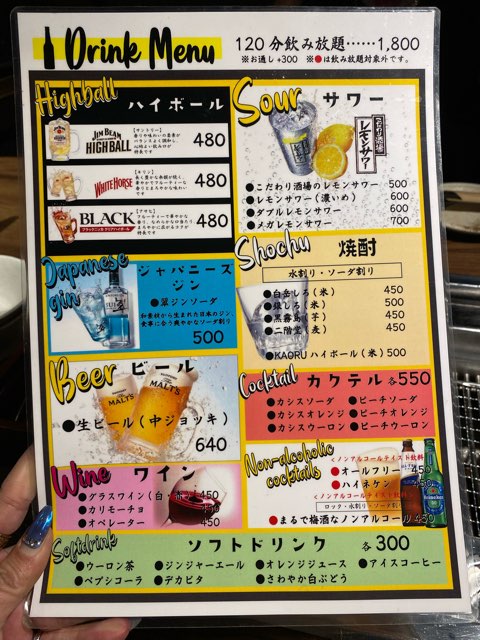 Drink Menu
120分飲み放題……1,800
※お通し+300 ※●は飲み放題対象外です。
Highball
ハイボール
JIM BEAM
HIGHBALL
【サントリー】
480
WHITE HORSE
【キリン】
480
BLACK
ブラックニッカ クリアハイボール
【アサヒ】
480
Sour
サワー
こだわり酒場の
レモンサワー
●こだわり酒場のレモンサワー 500
●レモンサワー(濃いめ) 600
●ダブルレモンサワー 600
●メガレモンサワー 700
Japanese gin
ジャパニーズ
ジン
●翠ジンソーダ
和素材から生まれた日本のジン、
食事に合う爽やかなソーダ割り
500
Shochu
焼酎
水割り・ソーダ割り
●白岳しろ(米) 450
●銀しろ(米) 500
●黒霧島(芋) 450
●二階堂(麦) 450
●KAORUハイボール(米) 500
Beer
ビール
MALT'S
MALT'S
●生ビール(中ジョッキ)
640
Cocktail
カクテル 各550
●カシスソーダ ●ピーチソーダ
●カシスオレンジ ●ピーチオレンジ
●カシスウーロン ●ピーチウーロン
Wine
ワイン
●グラスワイン(白・赤) 450
●カリモーチョ 450
●オペレーター 450
Non-alcoholic
cocktails
<ノンアルコールテイスト飲料>
●オールフリー 450
●ハイネケン 450
<ノンアルコールテイスト飲料>
ロック・水割り・ソーダ割り
●まるで梅酒なノンアルコール 450
Softdrink
ソフトドリンク 各300
●ウーロン茶 ●ジンジャーエール ●オレンジジュース ●アイスコーヒー
●ペプシコーラ ●デカビタ ●さわやか白ぶどう